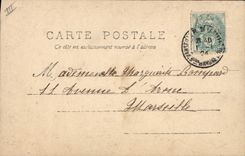 III
CARTE POSTALE
Ce côté est exclusivement réservé à l'adresse
Mademoiselle Marguerite
11 Avenue d'
Marseille